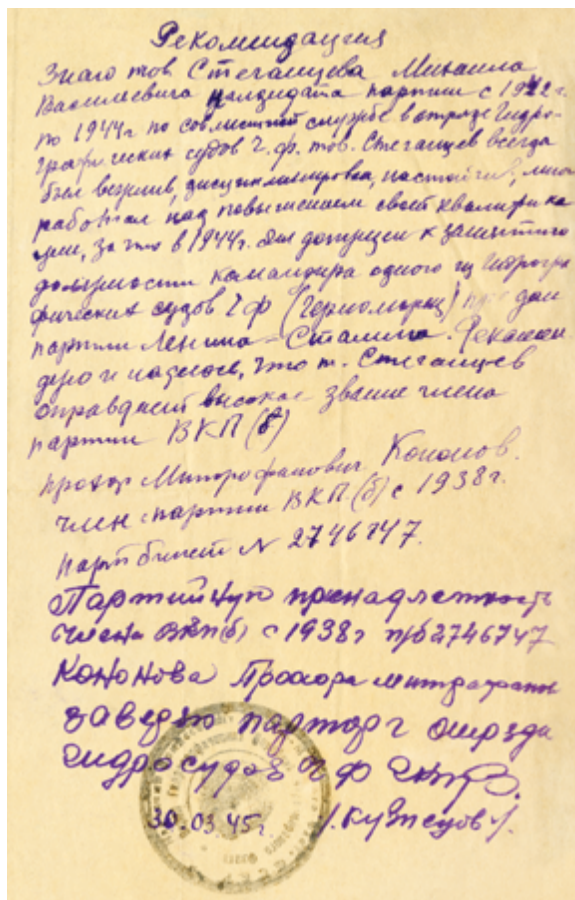 Рекомендация
Знаю тов. Стеганцева Михаила
Василевича кандидата партии с 1942 г.
по 1944 г. по совместной службе в отряде Гидро-
графических судов Ч.Ф. тов. Стеганцев всегда
был вежлив, дисциплинирован, настойчив, много
работал над повышением своей квалифика
ции, за что в 1944 г. был допущен к
должности командира одного из гидрогра
фических судов ЧФ (Черноморец) дал
партии Ленина-Сталина. Рекомен
дую и надеюсь, что т. Стеганцев
оправдает высокое звание члена
партии ВКП(б)
Прохор Митрофанович Кононов.
член партии ВКП(б) с 1938 г.
парт билет № 2746747.
Партийную принадлежность
члена ВКП(б) с 1938 г п/б 2746747
Кононова Прохора Митрофанов
заверяю парторг отряда
Гидросудов ЧФ
30.03.45 г. /.Кузнецов./